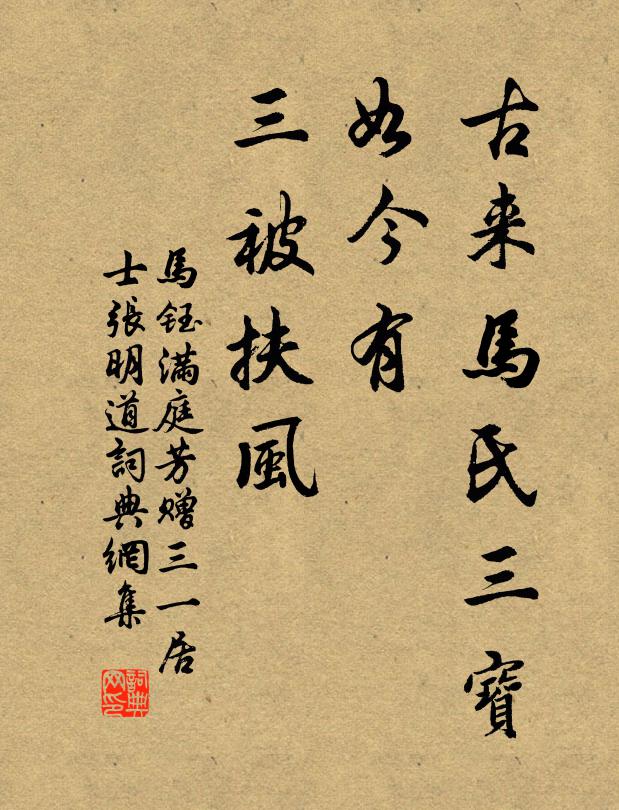 古来馬氏三寶
如今有
三被扶風
馬鈺滿庭芳赠三一居
士張明道詞典網集
詞典网印